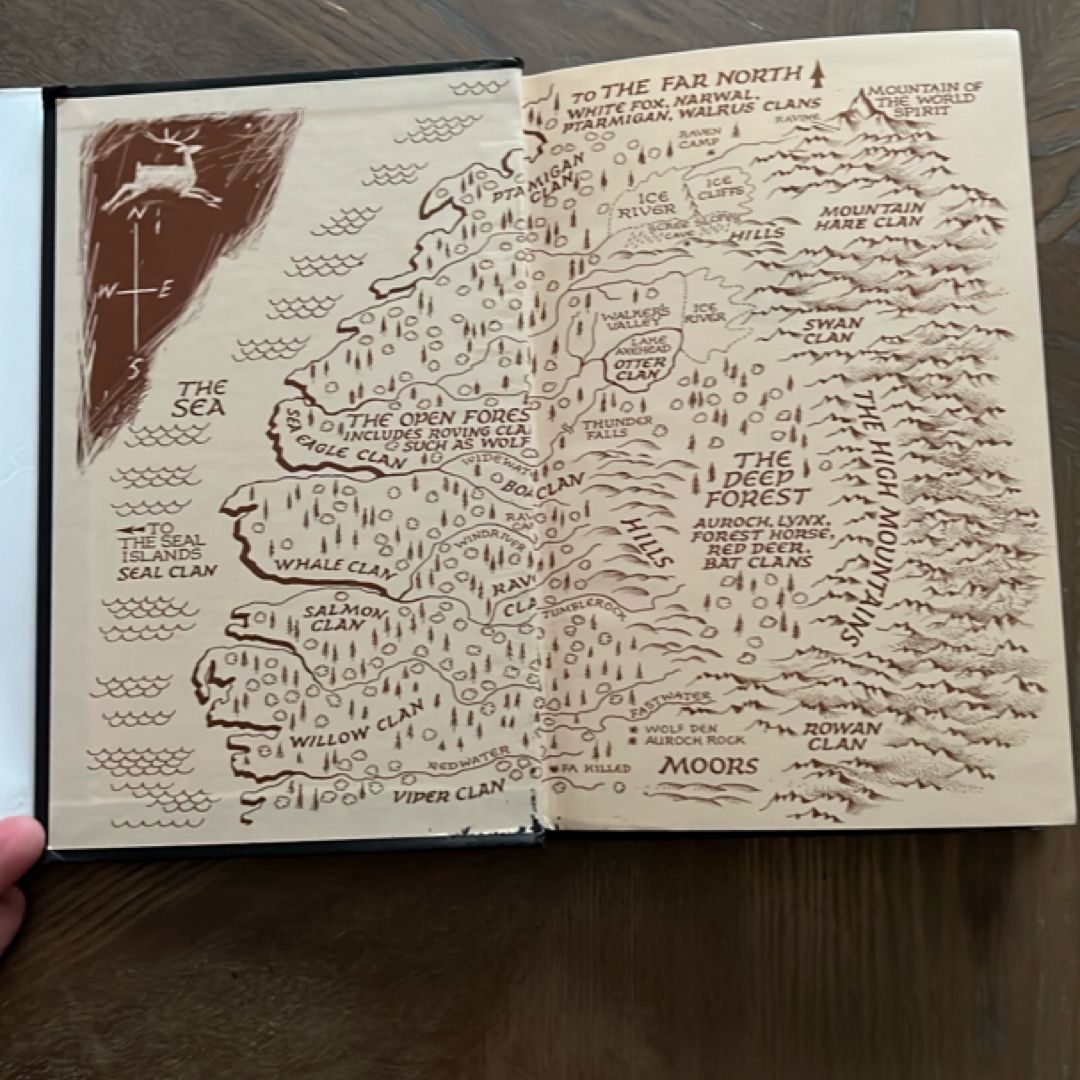 N
W E
S
THE
SEA
TO
THE SEAL
ISLANDS
SEAL CLAN
TO THE FAR NORTH
WHITE FOX, NARWAL,
PTARMIGAN, WALRUS CLANS
RAVINE
MOUNTAIN OF
THE WORLD
SPIRIT
RAVEN
CAMP
PTARMIGAN
CLAN
ICE
RIVER
ICE
CLIFFS
HILLS
MOUNTAIN
HARE CLAN
WALKER'S
VALLEY
ICE
RIVER
LAKE
AXEHEAD
OTTER
CLAN
SWAN
CLAN
SEA EAGLE CLAN
THE OPEN FORES
INCLUDES ROVING CLA
SUCH AS WOLF
THUNDER
FALLS
CLAN
THE
DEEP
FOREST
AUROCH, LYNX,
FOREST HORSE,
RED DEER,
BAT CLANS
THE HIGH MOUNTAINS
HILLS
WINDRIVER
WHALE CLAN
RAV
CLA
TUMBLEROCK
SALMON
CLAN
WILLOW CLAN
FASTWATER
WOLF DEN
AUROCH ROCK
ROWAN
CLAN
REDWATER
FA KILLED
MOORS
VIPER CLAN